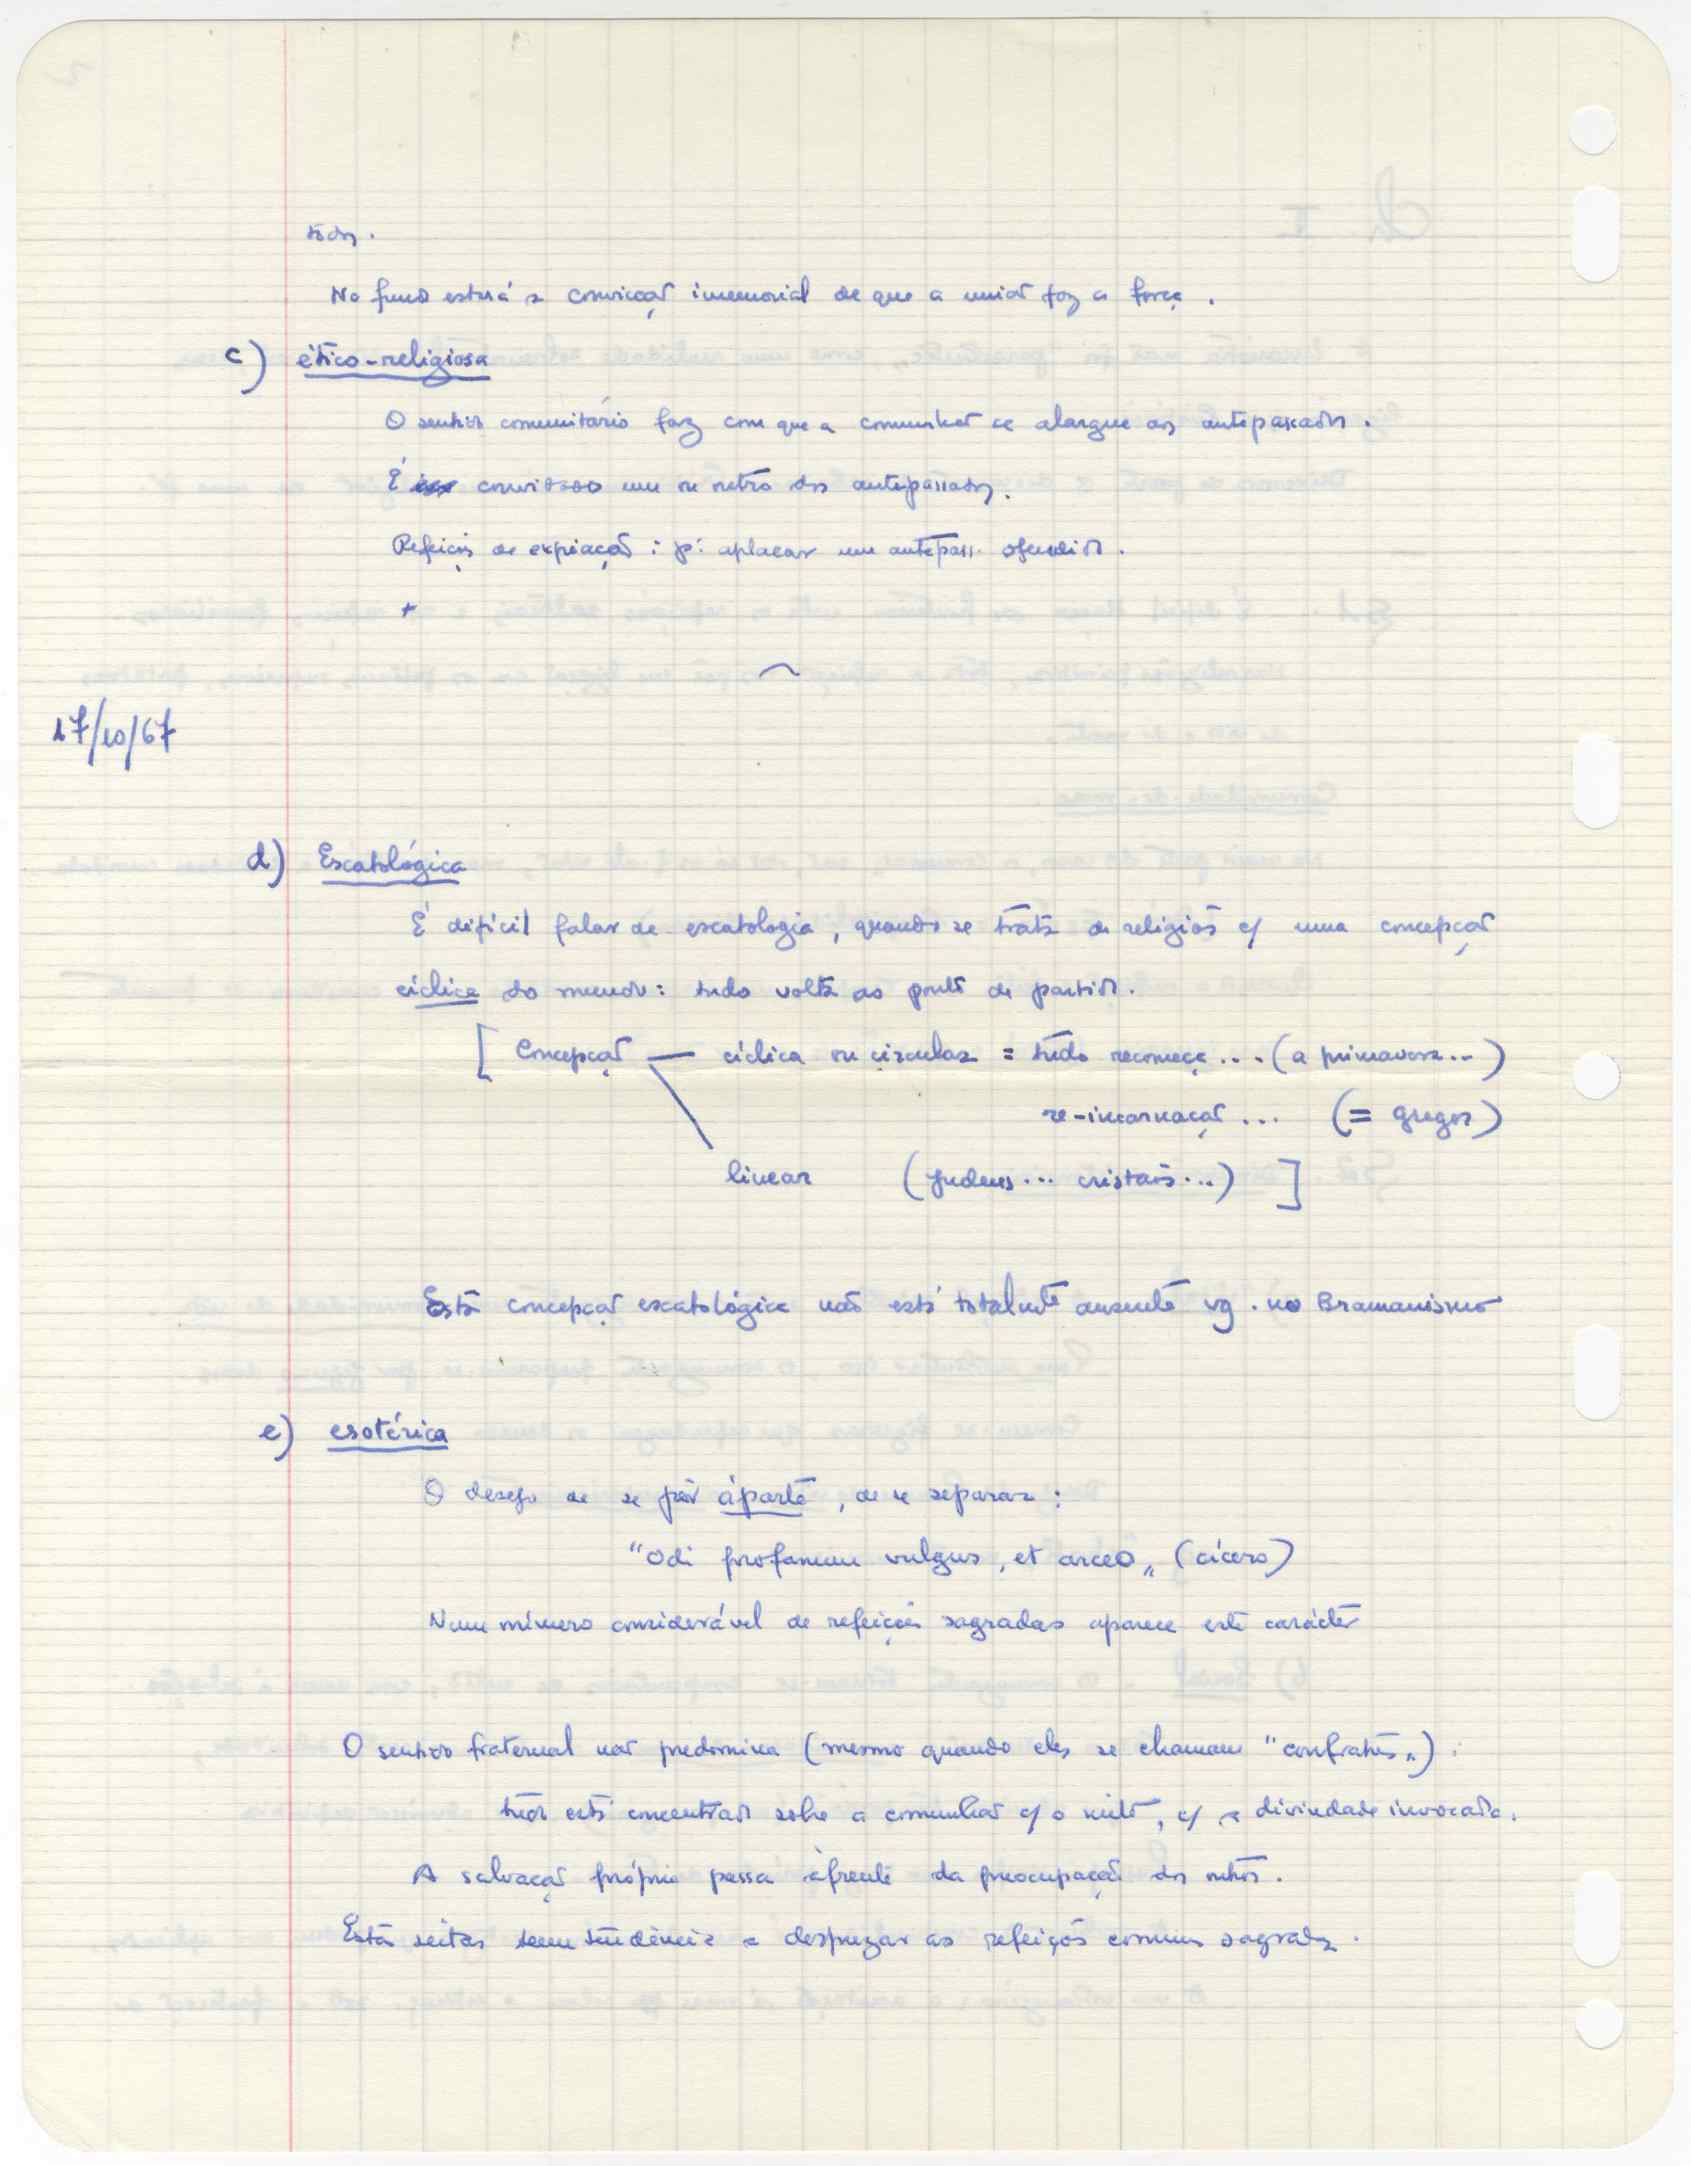 todos.
No fundo estará a convicção imemorial de que a união faz a força.
c) ético-religiosa
O sentido comunitário faz com que a comunhão se alargue aos antepassados.
É convidado um ou outro dos antepassados.
Refeições de expiação: p: aplacar um antepass. ofendido.
+
17/10/67
d) Escatológica
É difícil falar de escatologia, quando se trata de religiões c/ uma concepção
cíclica do mundo: tudo volta ao ponto de partida.
[ Concepção — cíclica ou circular = tudo recomeça .... (a primavera...)
re-incarnação ... (= gregos)
linear (Judeus ... cristãos ...) ]
Esta concepção escatológica não está totalmte ausente vg. no Bramanismo
e) esotérica
O desejo de se pôr àparte, de se separar:
"Odi profanum vulgus, et arceo„ (cícero)
Num número considerável de refeições sagradas aparece este carácter
O sentido fraternal não predomina (mesmo quando eles se chamam "confrates„):
tudo está concentrado sobre a comunhão c/ o mito, c/ a divindade invocada.
A salvação própria passa àfrente da preocupação dos outros.
Estas seitas tem tendência a desprezar as refeições comuns sagradas.